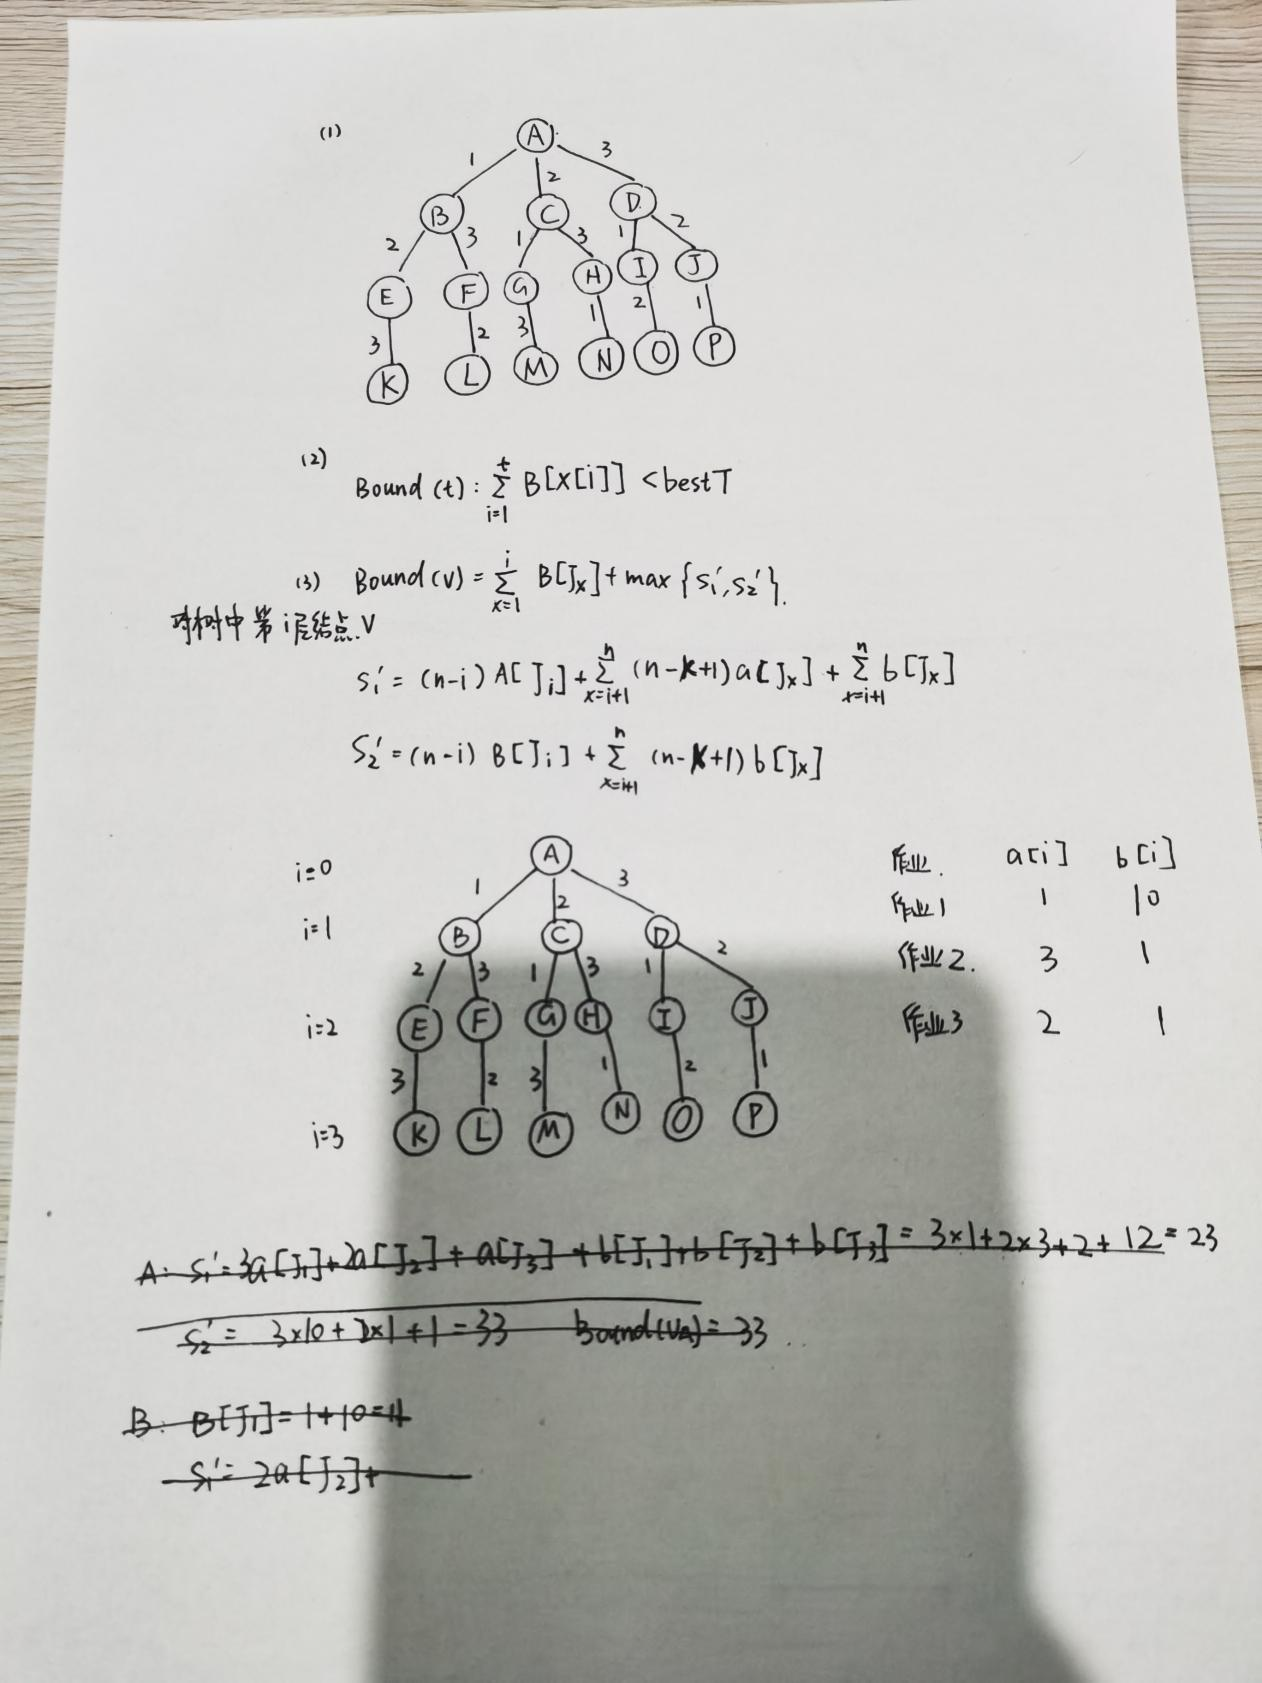 (1)
A
1 2 3
B C D
2 3 1 3 1 2
E F G H I J
3 2 3 1 2 1
K L M N O P
(2)
Bound (t) : \sum_{i=1}^{t} B[x[i]] < bestT
(3) Bound(v) = \sum_{x=1}^{i} B[J_x] + max {s_1', s_2'}.
对树中第i层结点.V
s_1' = (n-i) A[J_i] + \sum_{x=i+1}^{n} (n-k+1) a[J_x] + \sum_{x=i+1}^{n} b[J_x]
S_2' = (n-i) B[J_i] + \sum_{x=i+1}^{n} (n-k+1) b[J_x]
i=0 A
1 2 3
i=1 B C D
2 3 1 3 1 2
i=2 E F G H I J
3 2 3 1 2 1
i=3 K L M N O P
作业. a[i] b[i]
作业1 1 10
作业2. 3 1
作业3 2 1
A: s_1' = 3a[J_1] + 2a[J_2] + a[J_3] + b[J_1] + b[J_2] + b[J_3] = 3×1+2×3+2+12 = 23
s_2' = 3×10 + 2×1 + 1 = 33 Bound(V_A) = 33
B: B[J_1] = 1+10 = 11
s_1' = 2a[J_2] +